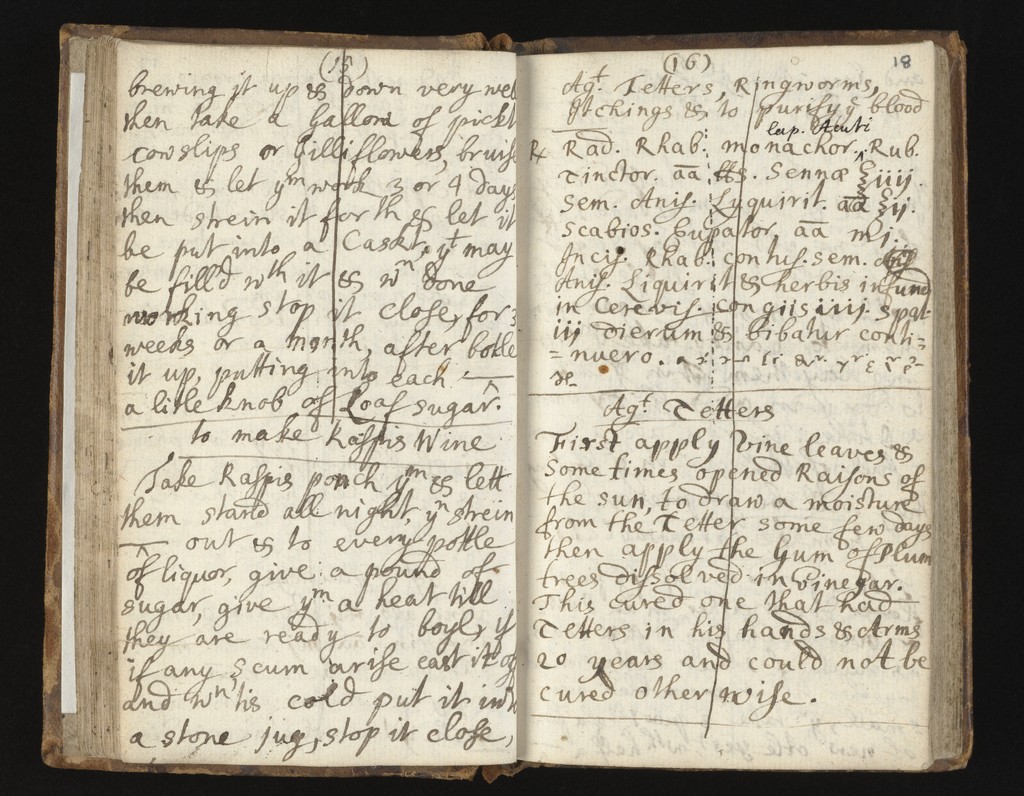 (15)
brewing it up & down very well
then take a Gallon of pickt
cowslips or Gilliflowers, bruise
them & let ym work 3 or 4 days
then strein it forth & let it
be put into a Caske, yt may
be fill'd wth it & wn done
working stop it close, for 3
weeks or a month, after botle
it up, putting into each
a litle knob of Loaf sugar.
to make Raspis Wine
Take Raspis ponch ym & lett
them stand all night, yn strein
out & to every pottle
of liquor, give a pound of
sugar, give ym a heat till
they are ready to boyl, if
if any scum arise cast it of
and wn tis cold put it into
a stone jug, stop it close,
(16)
18
Agt Tetters, Ringworms,
Itchings & to purify ye blood
lap. Acuti
℞ Rad. Rhab. monachor. Rub.
Tinctor. āā ℔s. Sennæ ℥iiij.
Sem. Anis. Lyquirit. āā ℥ij.
Scabios. Eupator āā mj.
Incis. Rhab. contus. sem.
Anis. Liquirit & herbis infund
in Cerevis. congiis iiij. spat
iij dierum & bibatur conti=
=nuero.
Agt Tetters
First apply Vine leaves &
Sometimes opened Raisons of
the sun, to draw a moisture
from the Tetter some few days
then apply the Gum of Plum
trees dissolved in Vinegar.
This cured one that had
Tetters in his hands & Arms
20 years and could not be
cured otherwise.